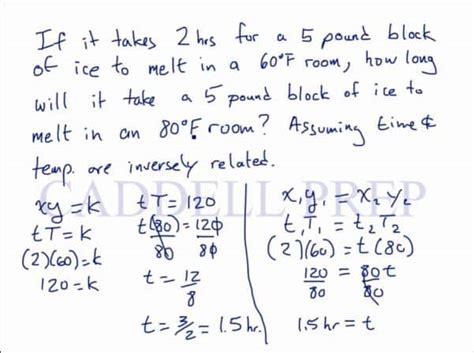 If it takes 2 hrs for a 5 pound block
of ice to melt in a 60°F room, how long
will it take a 5 pound block of ice to
melt in an 80°F room? Assuming time &
temp. are inversely related.
CADDELL PREP
xy = k
tT = k
(2)(60) = k
120 = k
tT = 120
t(80) = 120
80 80
t = 12
8
t = 3/2 = 1.5 hr.
x₁y₁ = x₂y₂
t₁T₁ = t₂T₂
(2)(60) = t(80)
120 = 80t
80 80
1.5 hr = t